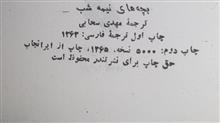 بچه‌های نیمه شب
ترجمهٔ مهدی سحابی
چاپ اول ترجمهٔ فارسی: ۱۳۶۳
چاپ دوم: ۵۰۰۰ نسخه، ۱۳۶۵، چاپ از ایرانچاپ
حق چاپ برای نشر تندر محفوظ است